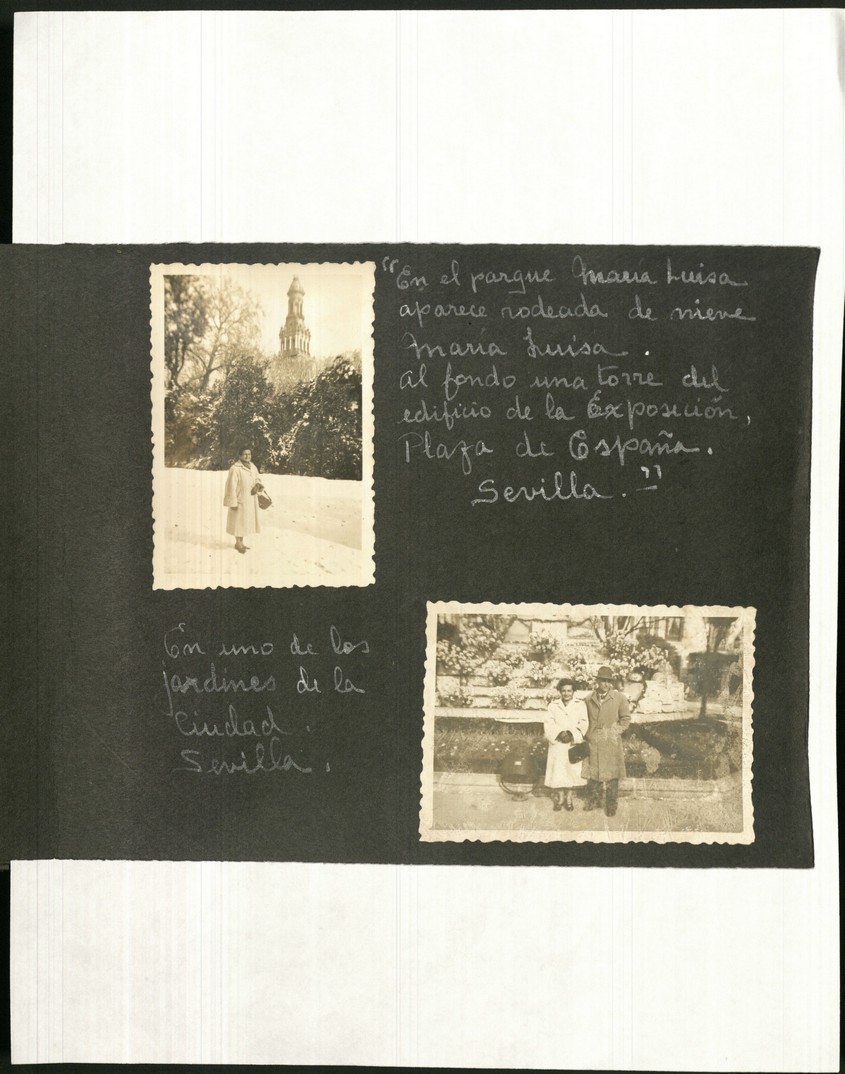 "En el parque María Luisa
aparece rodeada de nieve
María Luisa.
Al fondo una torre del
edificio de la Exposición,
Plaza de España.
Sevilla."
En uno de los
jardines de la
Ciudad.
Sevilla.